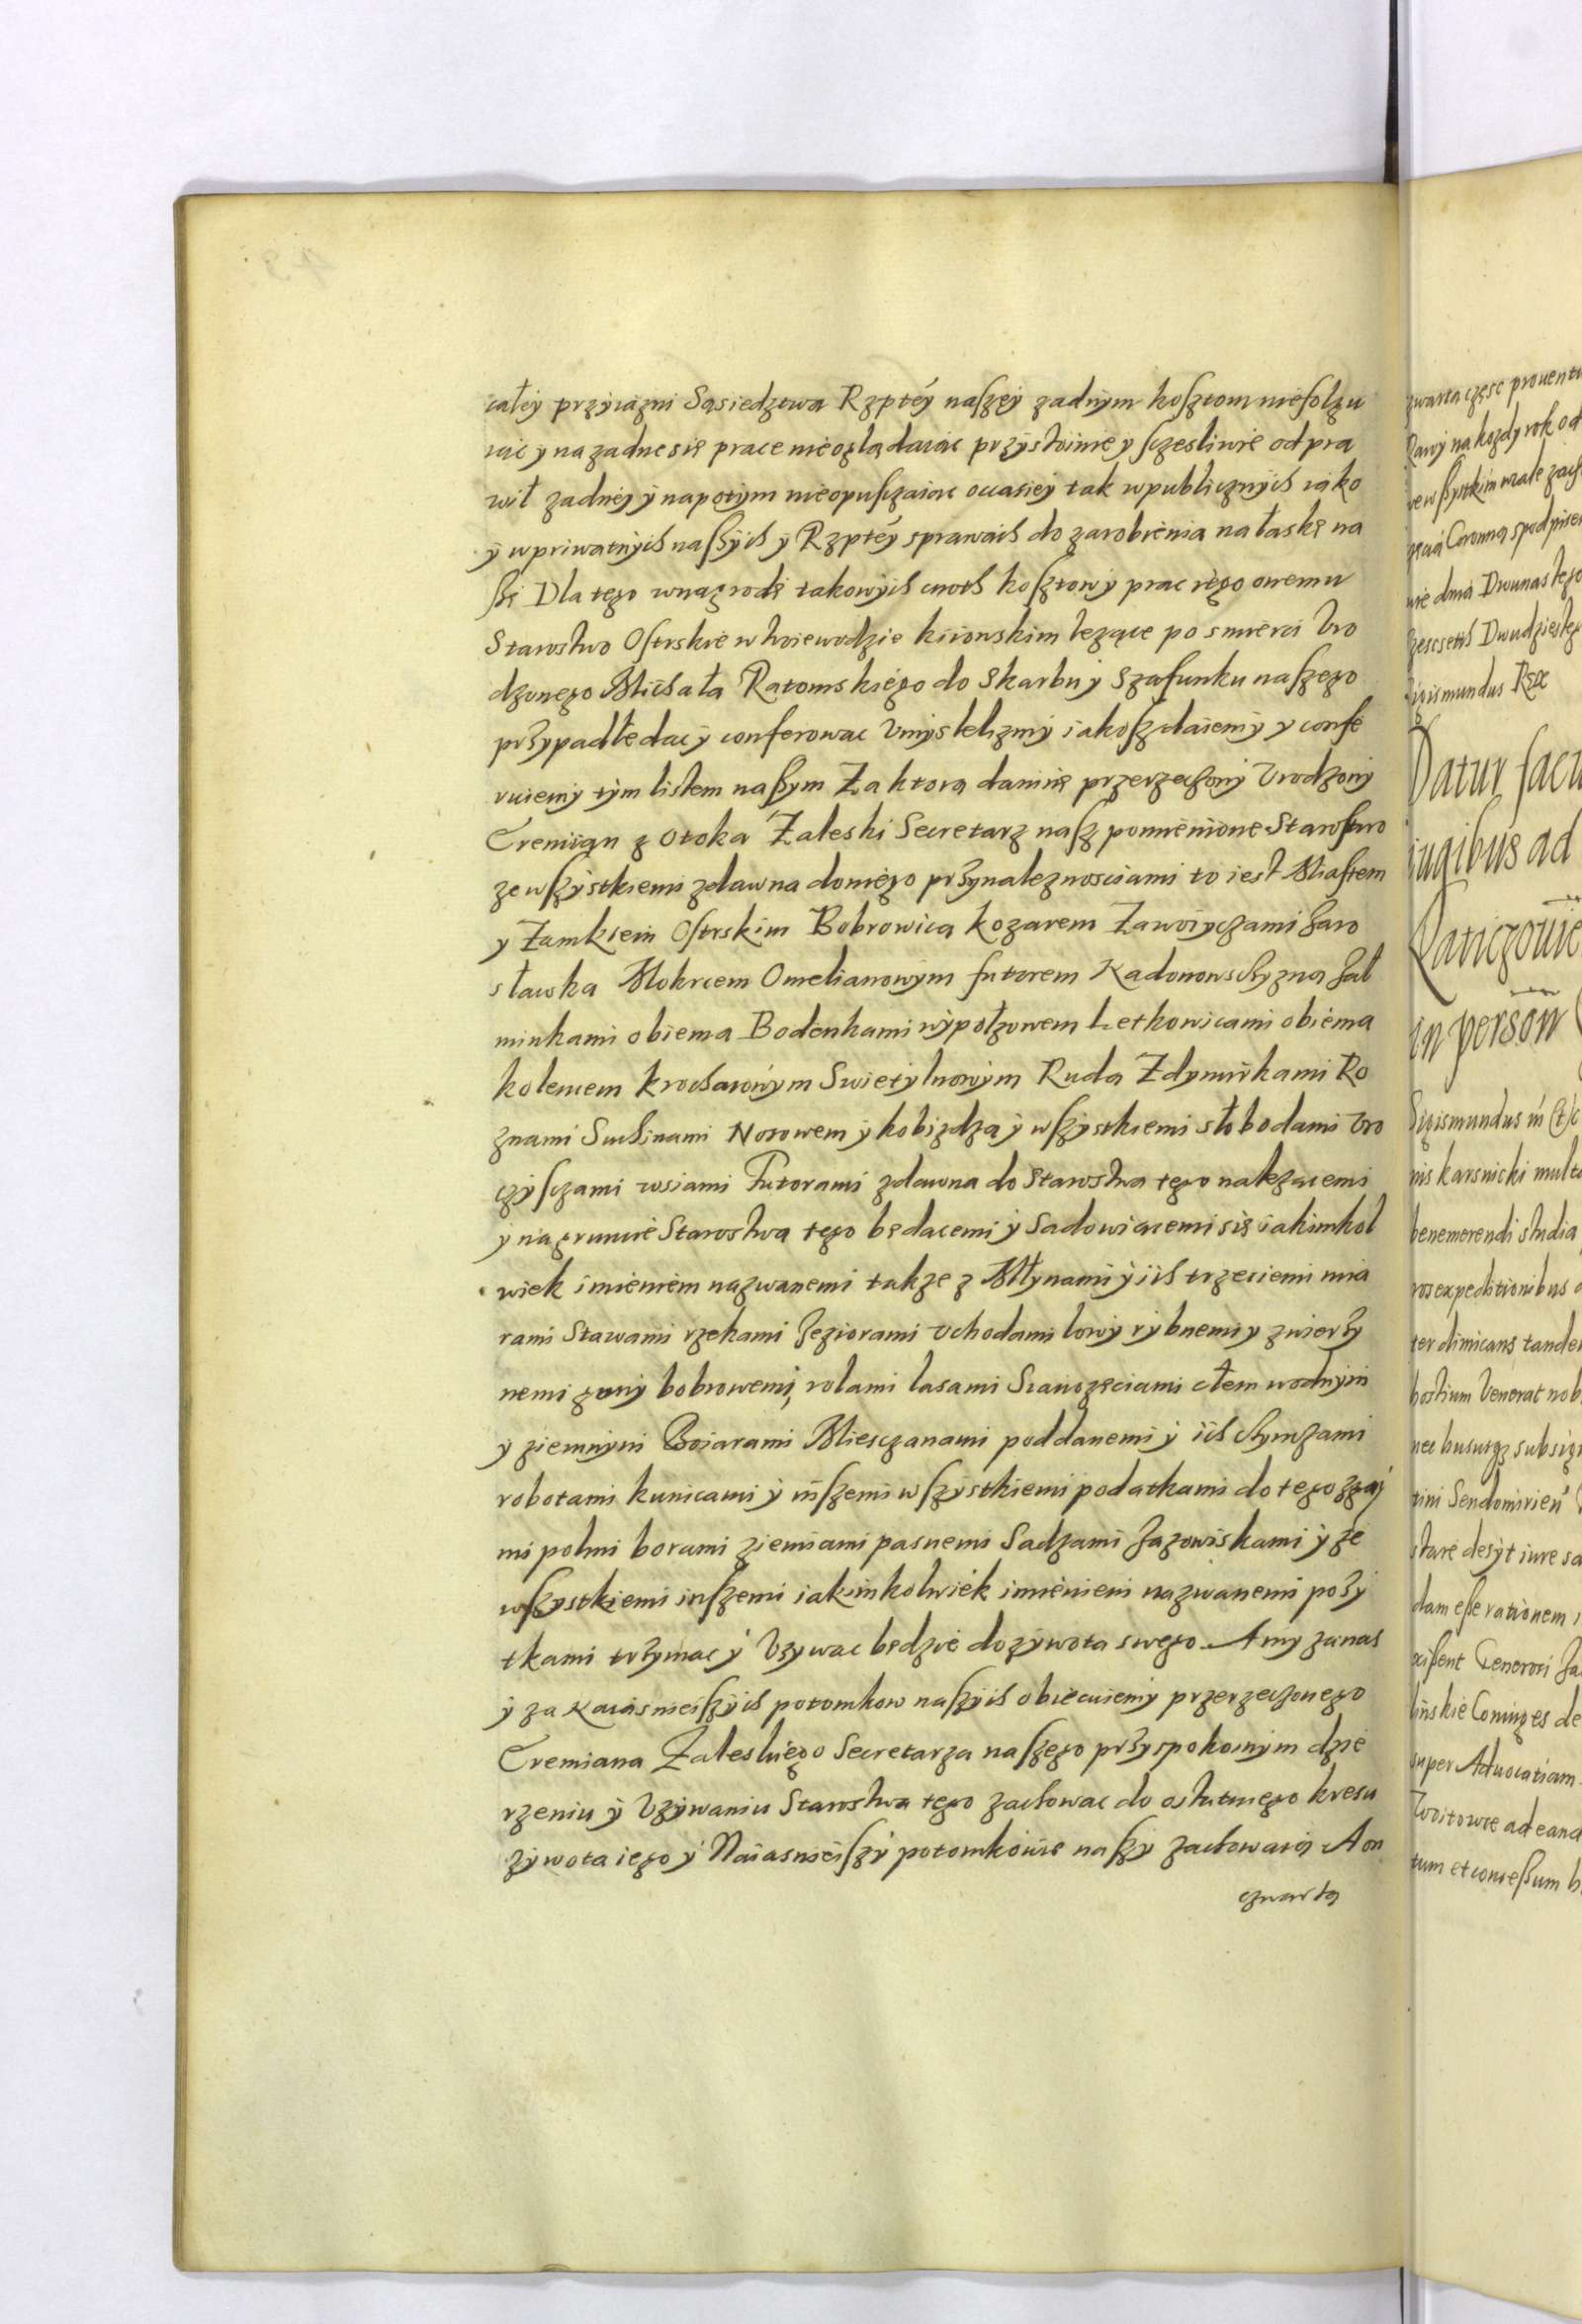 całey przyiazni Sąsiedztwa Rzptéy naszey zadnym kosztom niefolgu
iąc y na zadne się prace nieoglądaiąc przystoinie y sczesliwie odpra
wił zadney y napotym nieopusczaiąc occasiey tak wpublicznych iako
y wpriwatnych naszych y Rzptéy sprawach do zarobienia na łaskę na
szę Dla tego wnagrodę takowych cnoth kosztow y prac iego onemu
Starostwo Ostrskie w Woiewodzie kiiowskim lezące po smierci Vro
dzonego Michała Ratomskiego do Skarbu y Szafunku naszego
przypadłe dac y conferowac Vmyslelizmy iakosz daiemy y confe
ruiemy tym listem naszym Za ktorą daniną przerzeczony Vrodzony
Cremiian z Otoka Zaleski Secretarz nasz pomienione Starostwo
ze wszystkiemi zdawna doniego przynaleznosciami to iest Miastem
y Zamkiem Ostrskim Bobrowicą kozarem Zaworyczami Jaro
sławka Mokrcem Omelianowym futorem Kadonowsczyzną Jał
minkami obiema Bodenkami wypołzowem Letkowicami obiema
kolencem krochawnym Swietylnowym Ruda Zdymirkami Ro
znami Suchinami Nosowem y kobizdzą y wszystkiemi słobodami Vro
czysczami wsiami Futorami zdawna do Starostwa tego nalezącemi
y na gruncie Starostwa tego będącemi y Sadowiącemi się iakimkol
wiek imieniem nazwanemi takze z Młynami y ich trzeciemi mia
rami Stawami rzekami Jeziorami vchodami lowy rybnemi y zwierzy
nemi gony bobrowemi, rolami lasami Sianozęciami cłem wodnym
y ziemnym Boiarami Miesczanami poddanemi y ich czynszami
robotami kunicami y inszemi wszystkiemi podatkami do tego zgay
mi polmi borami ziemiami pasnemi Sadzami Jazowiskami y ze
wszystkiemi inszemi iakimkolwiek imieniem nazwanemi pozy
tkami trzymac y Vzywac bedzie do zywota swego. A my za nas
y za Naiasnieiszych potomkow naszych obiecuiemy przerzeczonego
Cremiana Zaleskiego Secretarza naszego przy spokoinym dzie
rzeniu y Vzywaniu Starostwa tego zachowac do ostatniego kresu
zywota iego y Naiasnieiszy potomkowie naszy zachowaią A on
czwartą
zwarta część prouentu
Rawy na kozdy rok od
we wszystkim wcale zach
Coronną spodpisem
nie dnia Dwunastego
Dwudziesteg
Sigismundus Rex
Datur facu
iugibus ad
Raticzowie
in person
Sigismundus
nis karsnicki multa
benemerendi studia
expeditionibus
ter dimicans tande
hostium Venerat nob
subsig
tini Sendomirien
stare desyt iure sa
dam esse rationem
Generosi Ja
linskie Coniuges de
super Aduocatiam
Woitowie ad eand
tum et concessum